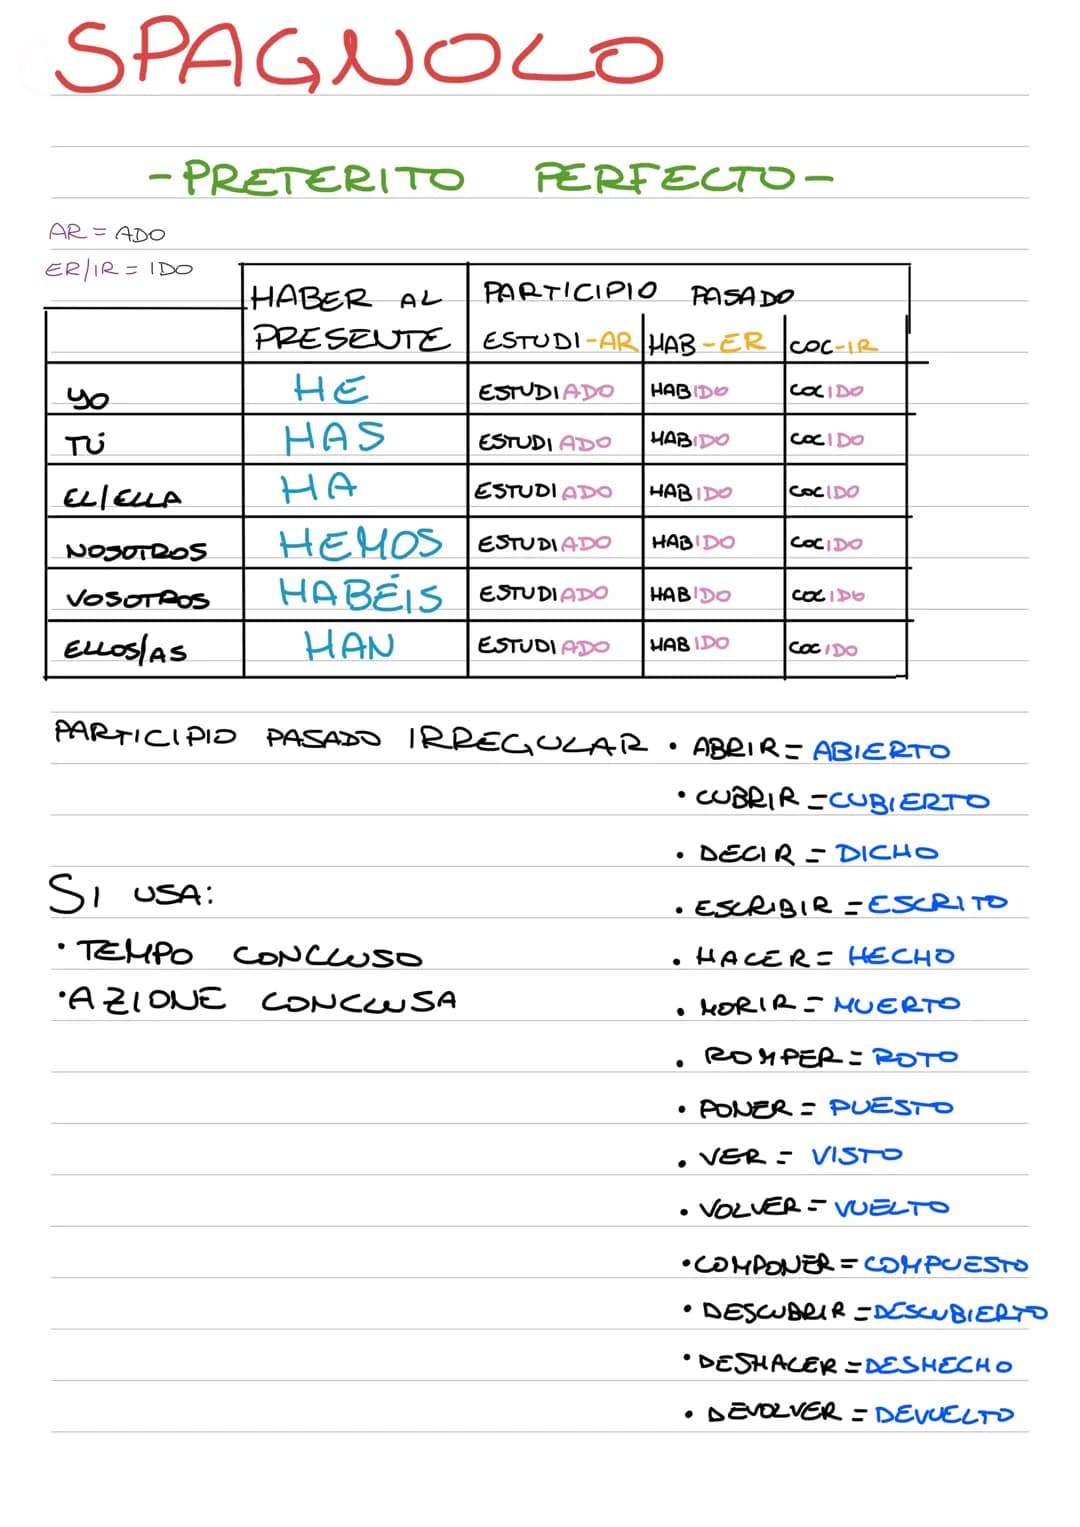 SPAGNOLO
-PRETERITO PERFECTO-
AR = ADO
ER/IR = IDO
HABER AL PRESENTE
PARTICIPIO PASADO
ESTUDI-AR HAB-ER COC-IR
YO HE ESTUDIADO HABIDO COCIDO
TÚ HAS ESTUDIADO HABIDO COCIDO
EL/ELLA HA ESTUDIADO HABIDO COCIDO
NOSOTROS HEMOS ESTUDIADO HABIDO COCIDO
VOSOTROS HABÉIS ESTUDIADO HABIDO COCIDO
ELLOS/AS HAN ESTUDIADO HABIDO COCIDO
PARTICIPIO PASADO IRREGULAR • ABRIR = ABIERTO
• CUBRIR = CUBIERTO
• DECIR = DICHO
SI USA:
• ESCRIBIR = ESCRITO
• TEMPO CONCLUSO
• HACER = HECHO
• AZIONE CONCLUSA
• MORIR = MUERTO
• ROMPER = ROTO
• PONER = PUESTO
• VER = VISTO
• VOLVER = VUELTO
• COMPONER = COMPUESTO
• DESCUBRIR = DESCUBIERTO
• DESHACER = DESHECHO
• DEVOLVER = DEVUELTO